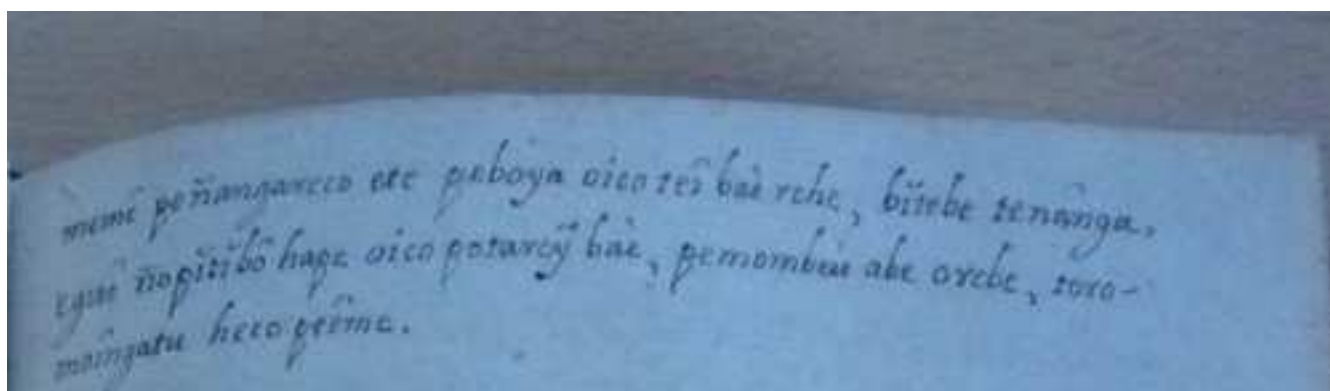 meme peñangareco ete peboya oico teî bàe rehe, bïtebe tenânga,
eguî ñopïtïbô hape oico potareỹ bàe, pemombeu abe orebe, toro-
moîngatu heco peîme.